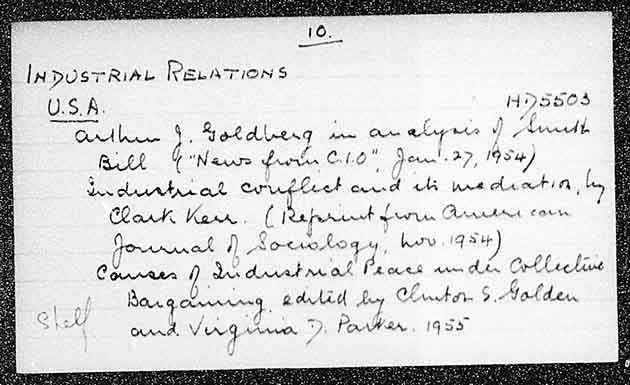 10.
INDUSTRIAL RELATIONS
U.S.A.
HD5503
Arthur J. Goldberg in analysis of Smith
Bill ("News from C.I.O", Jan. 27, 1954)
Industrial conflict and its mediation, by
Clark Kerr. (Reprint from American
Journal of Sociology, Nov. 1954)
Causes of Industrial Peace under Collective
Bargaining, edited by Clinton S. Golden
Shelf
and Virginia D. Parker. 1955